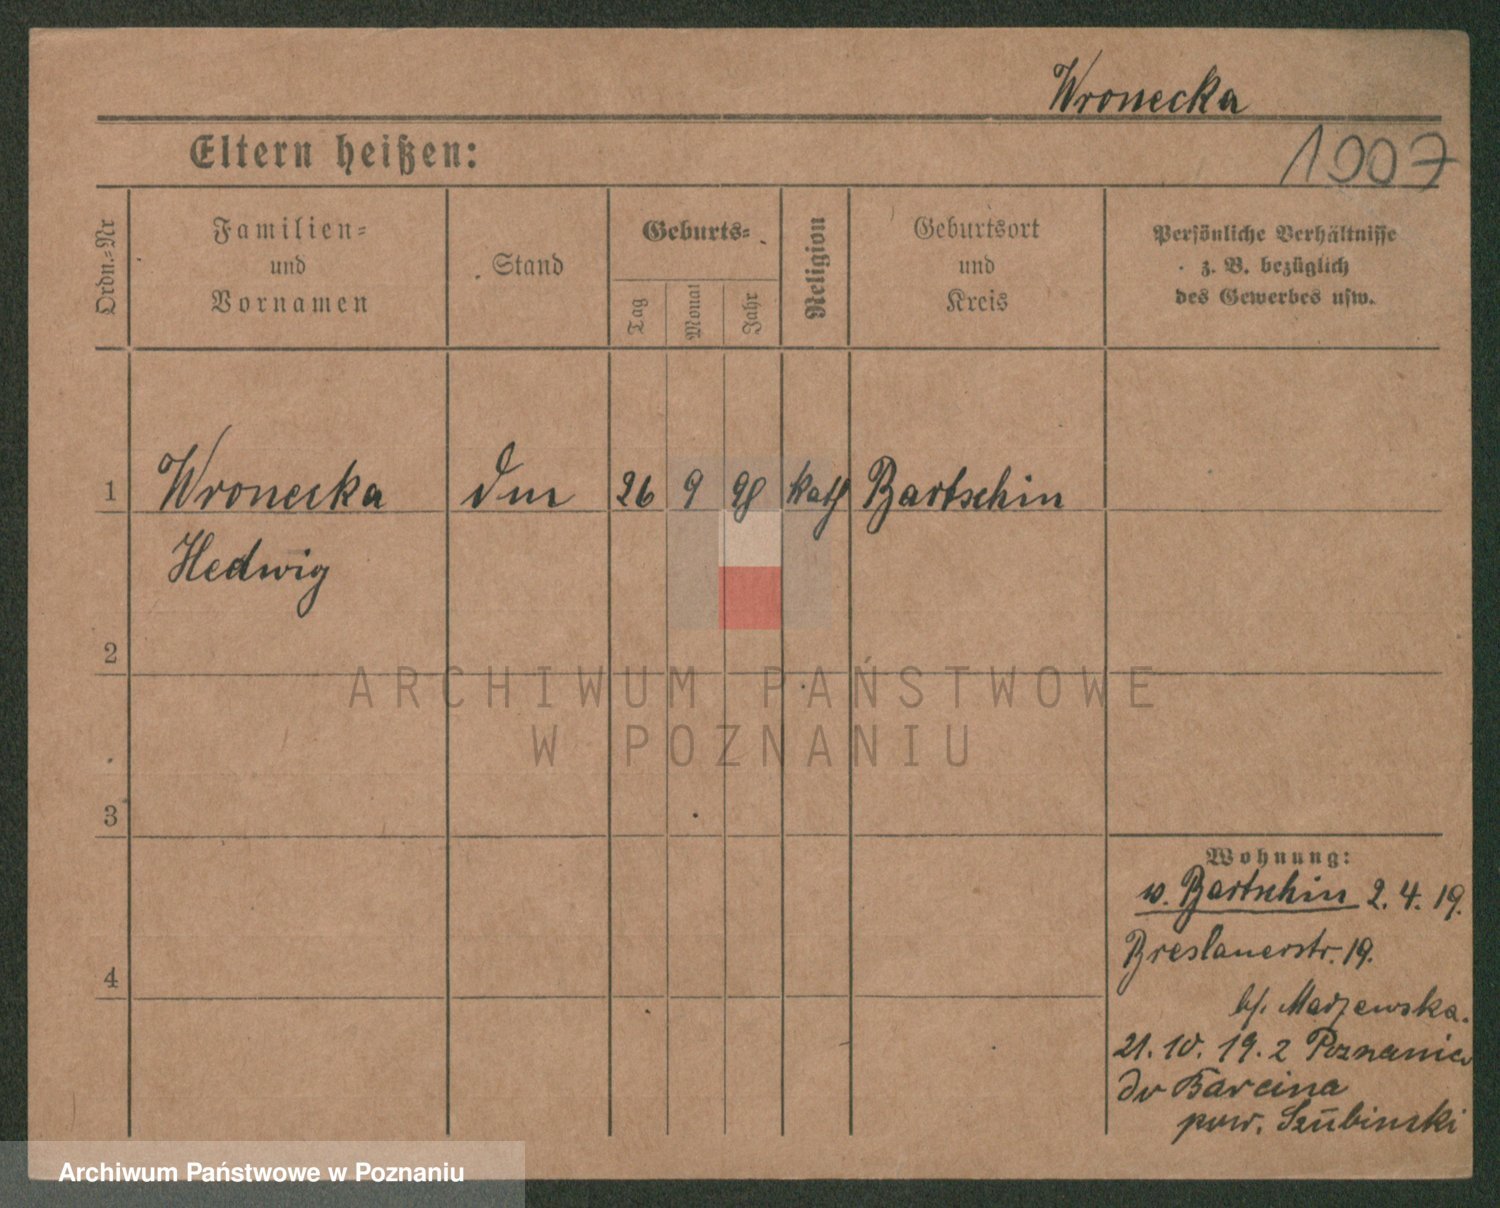 Wronecka
1907
Eltern heißen:
Ordn.-Nr
Familien-
und
Vornamen
Stand
Geburts-
Tag
Monat
Jahr
Religion
Geburtsort
und
Kreis
Persönliche Verhältnisse
z. B. bezüglich
des Gewerbes usw.
1 Wronecka 26 9 98 kath Bartschin
Hedwig
2
ARCHIWUM PAŃSTWOWE
W POZNANIU
3
Wohnung:
v. Bartschin 2. 4. 19.
Breslauerstr. 19.
4
b/.
21. 10. 19. z Poznania
do Barcina
pow. Szubinski
Archiwum Państwowe w Poznaniu